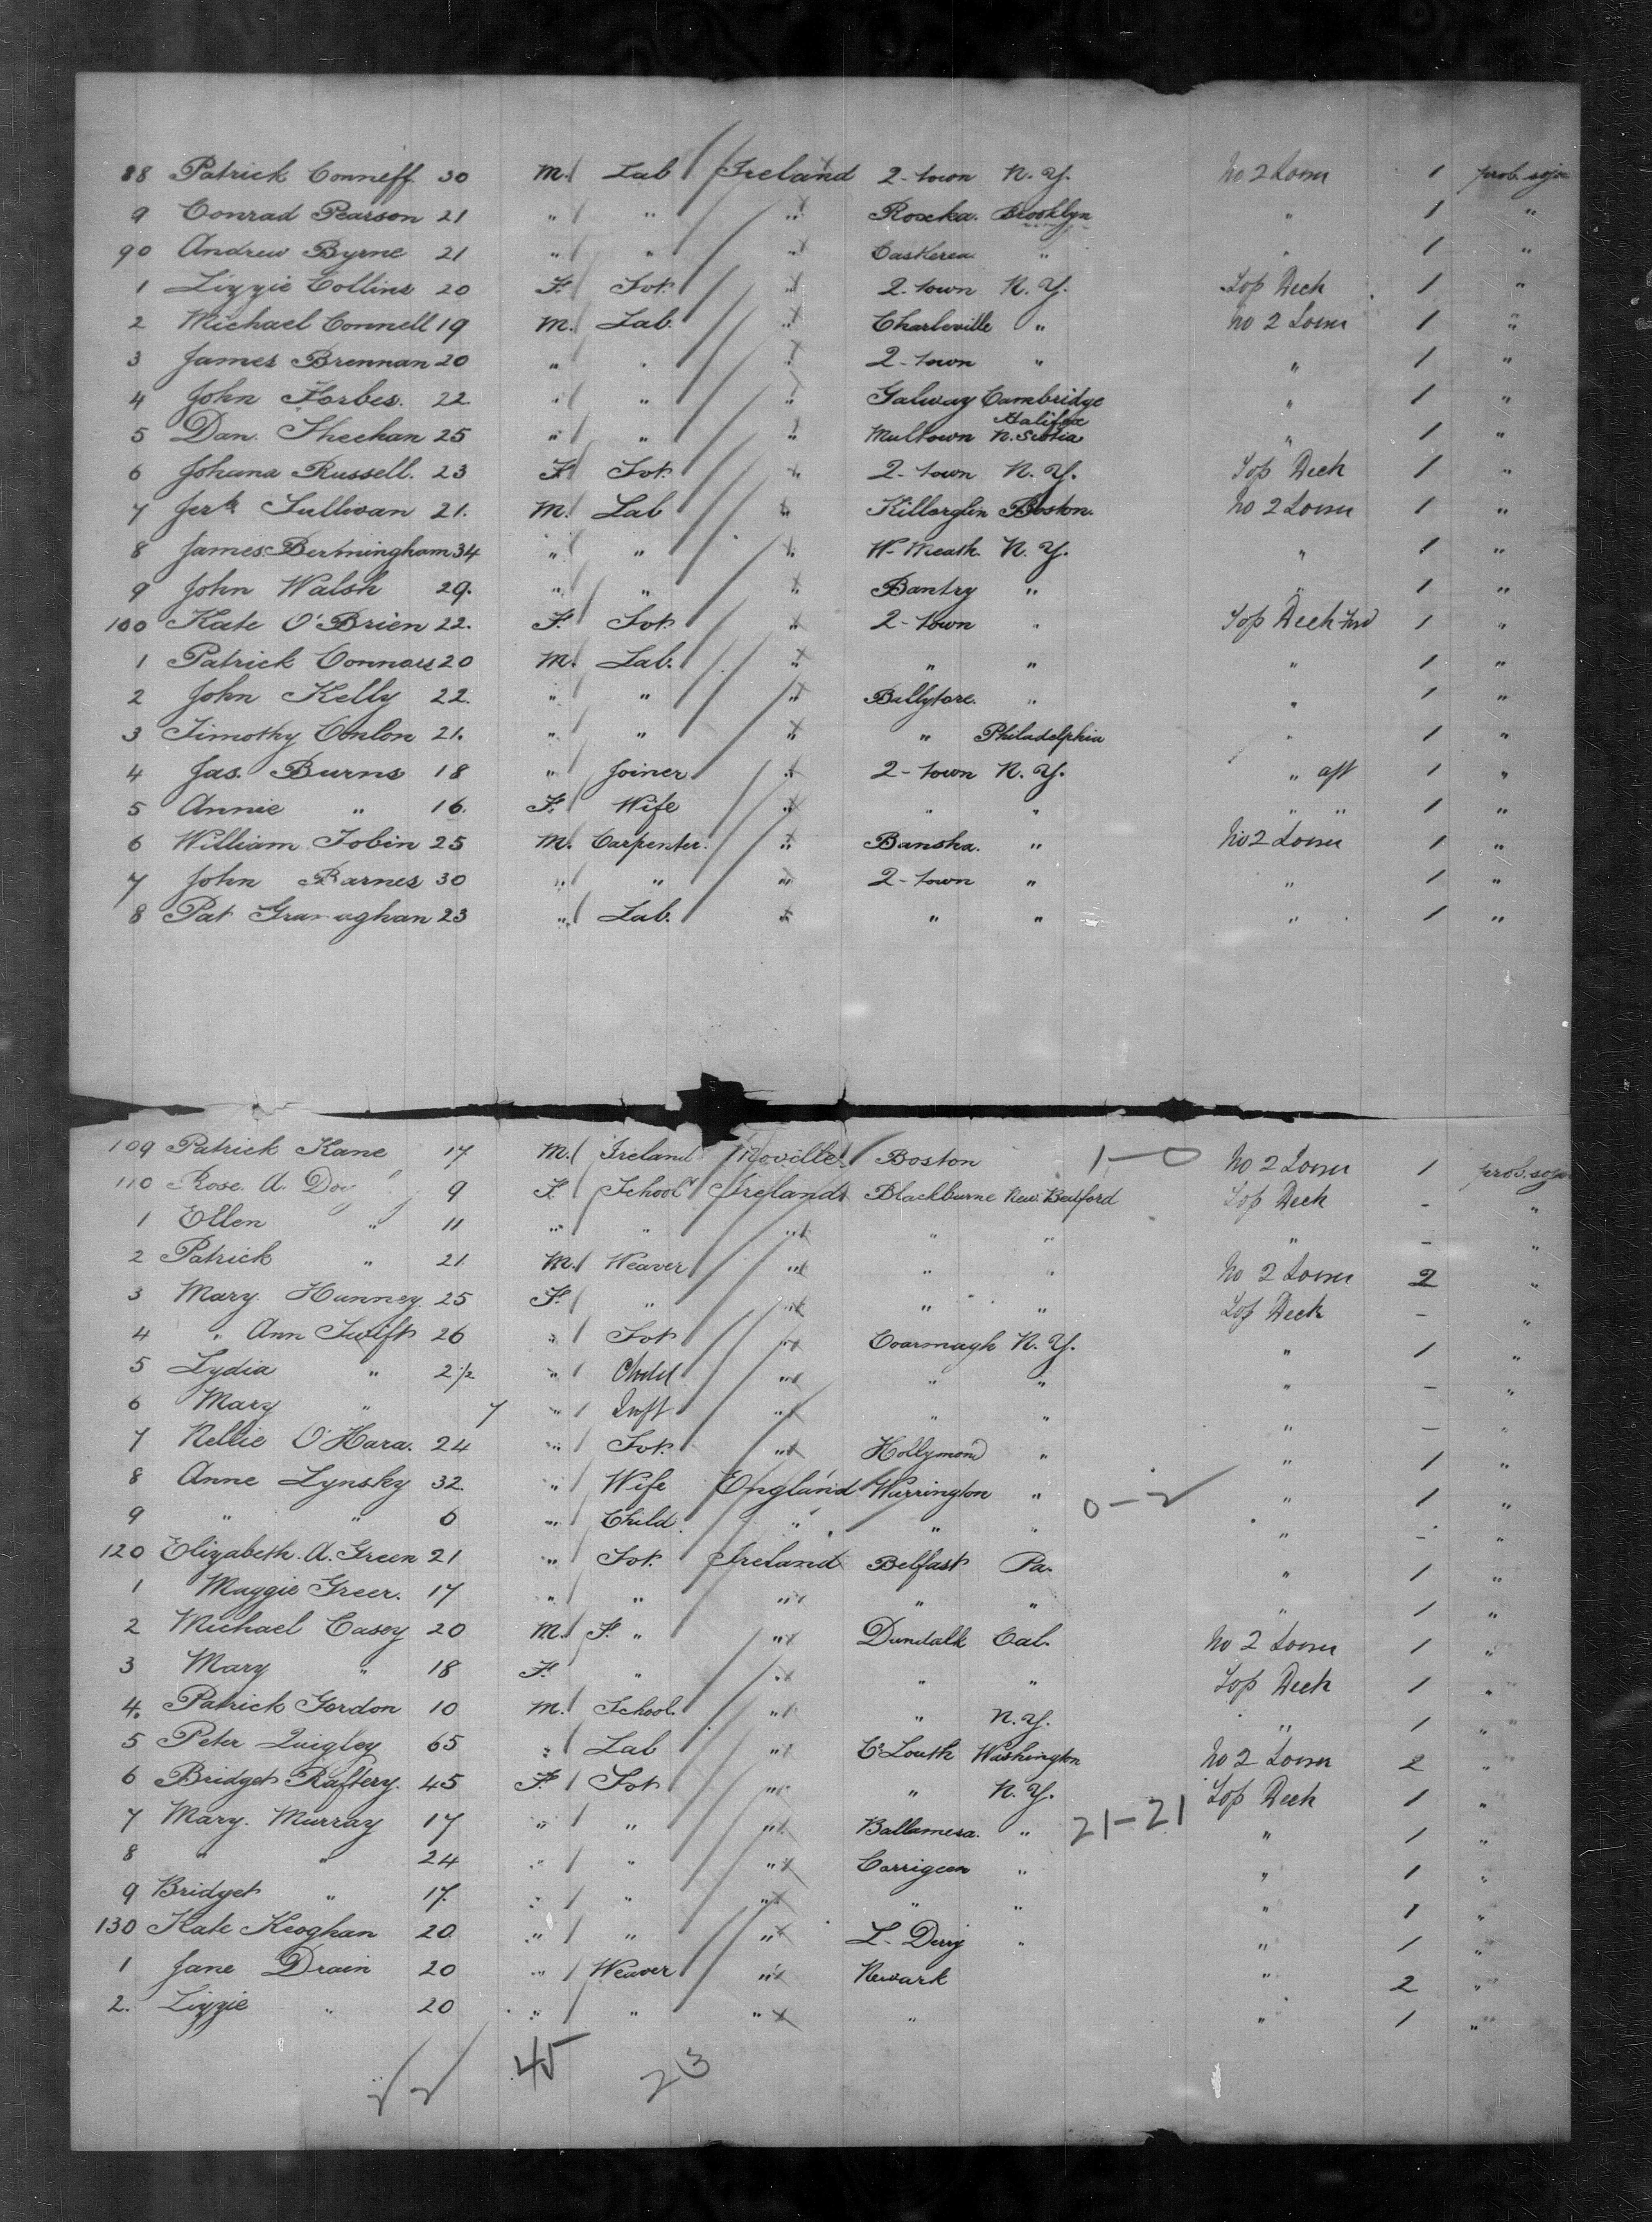 88 Patrick Conneff 30 M. Lab Ireland 2-town N.Y. No 2 Lower 1 prob. sojn
9 Conrad Pearson 21 " " " Roxeka. Brooklyn " 1 "
90 Andrew Byrne 21 " " " Caskerea " " 1 "
1 Lizzie Collins 20 F. Svt. " 2-town N.Y. Top Deck 1 "
2 Michael Connell 19 M. Lab. " Charleville " No 2 Lower 1 "
3 James Brennan 20 " " " 2-town " " 1 "
4 John Forbes. 22 " " " Galway Cambridge " 1 "
5 Dan. Sheehan 25 " " " Multown Halifax N. Scotia " 1 "
6 Johana Russell. 23 F Svt. " 2-town N.Y. Top Deck 1 "
7 Jerh Sullivan 21. M. Lab " Killorglin Boston. No 2 Lower 1 "
8 James Bertmingham 34 " " " W-Meath. N.Y. " 1 "
9 John Walsh 29. " " " Bantry " " 1 "
100 Kate O'Brien 22. F. Svt. " 2-town " Top Deck Fwd 1 "
1 Patrick Connors 20 M. Lab. " " " " 1 "
2 John Kelly 22. " " " Ballytore. " " 1 "
3 Timothy Conlon 21. " " " " Philadelphia " 1 "
4 Jas. Burns 18 " Joiner " 2-town N.Y. " aft 1 "
5 Annie " 16. F. Wife " " " " " 1 "
6 William Tobin 25 M. Carpenter. " Bansha. " No 2 Lower 1 "
7 John Barnes 30 " " " 2-town " " 1 "
8 Pat 23 " Lab. " " " " 1 "
109 Patrick Kane 17 M. Ireland Moville Boston 1-0 No 2 Lower 1 prob. sojn
110 Rose. A. 9 F. School Ireland Blackburne New. Bedford Top Deck - "
1 Ellen " 11 " " " " " " - "
2 Patrick " 21. M. Weaver " " " No 2 Lower 2 "
3 Mary Hanney. 25 F. " " " " Top Deck - "
4 " Ann Swift 26 " Svt " Coarmagh N.Y. " 1 "
5 Lydia " 2 1/2 " Child " " " " - "
6 Mary " 7 " Inft " " " " - "
7 Nellie O'Hara. 24 " Svt. " Hollymond " " 1 "
8 Anne Lynsky 32. " Wife England Warrington " 0-2 " 1 "
9 " " 6 " Child. " " " " - "
120 Elizabeth. A. Green 21 " Svt. Ireland Belfast Pa. " 1 "
1 Maggie Greer. 17 " " " " " " 1 "
2 Michael Casey 20 M. F. " " Dundalk Cal. No 2 Lower 1 "
3 Mary " 18 F. " " " " Top Deck 1 "
4. Patrick Gordon 10 M. School. " " N.Y. " 1 "
5 Peter Quigley 65 " Lab " Co Louth Washington No 2 Lower 2 "
6 Bridget Raftery. 45 F. Svt " " N.Y. Top Deck 1 "
7 Mary. Murray 17 " " " Ballamesa. " 21-21 " 1 "
8 " " 24 " " " Carrigeen " " 1 "
9 Bridget " 17. " " " " " " 1 "
130 Kate Keoghan 20 " " " L. Derry " " 1 "
1 Jane Drain 20 " Weaver " Newark " 2 "
2. Lizzie " 20 " " " " " 1 "
45 23